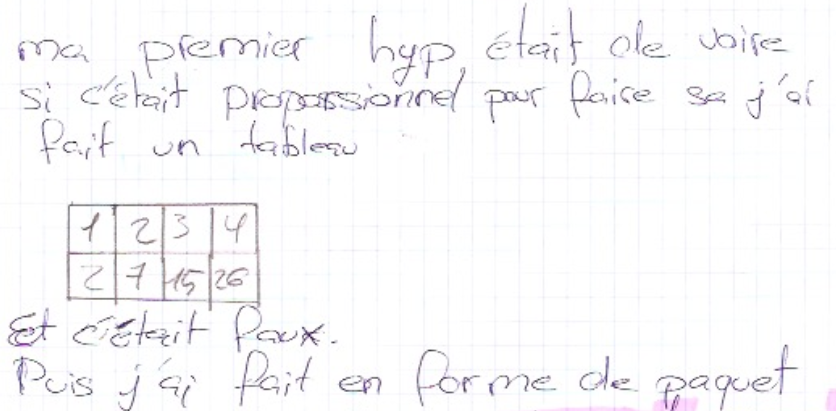 ma premier hyp était de voire
si c'était proporssionnel pour faire sa j'ai
fait un tableau
1 2 3 4
2 7 15 26
Et c'était faux.
Puis j'ai fait en forme de paquet